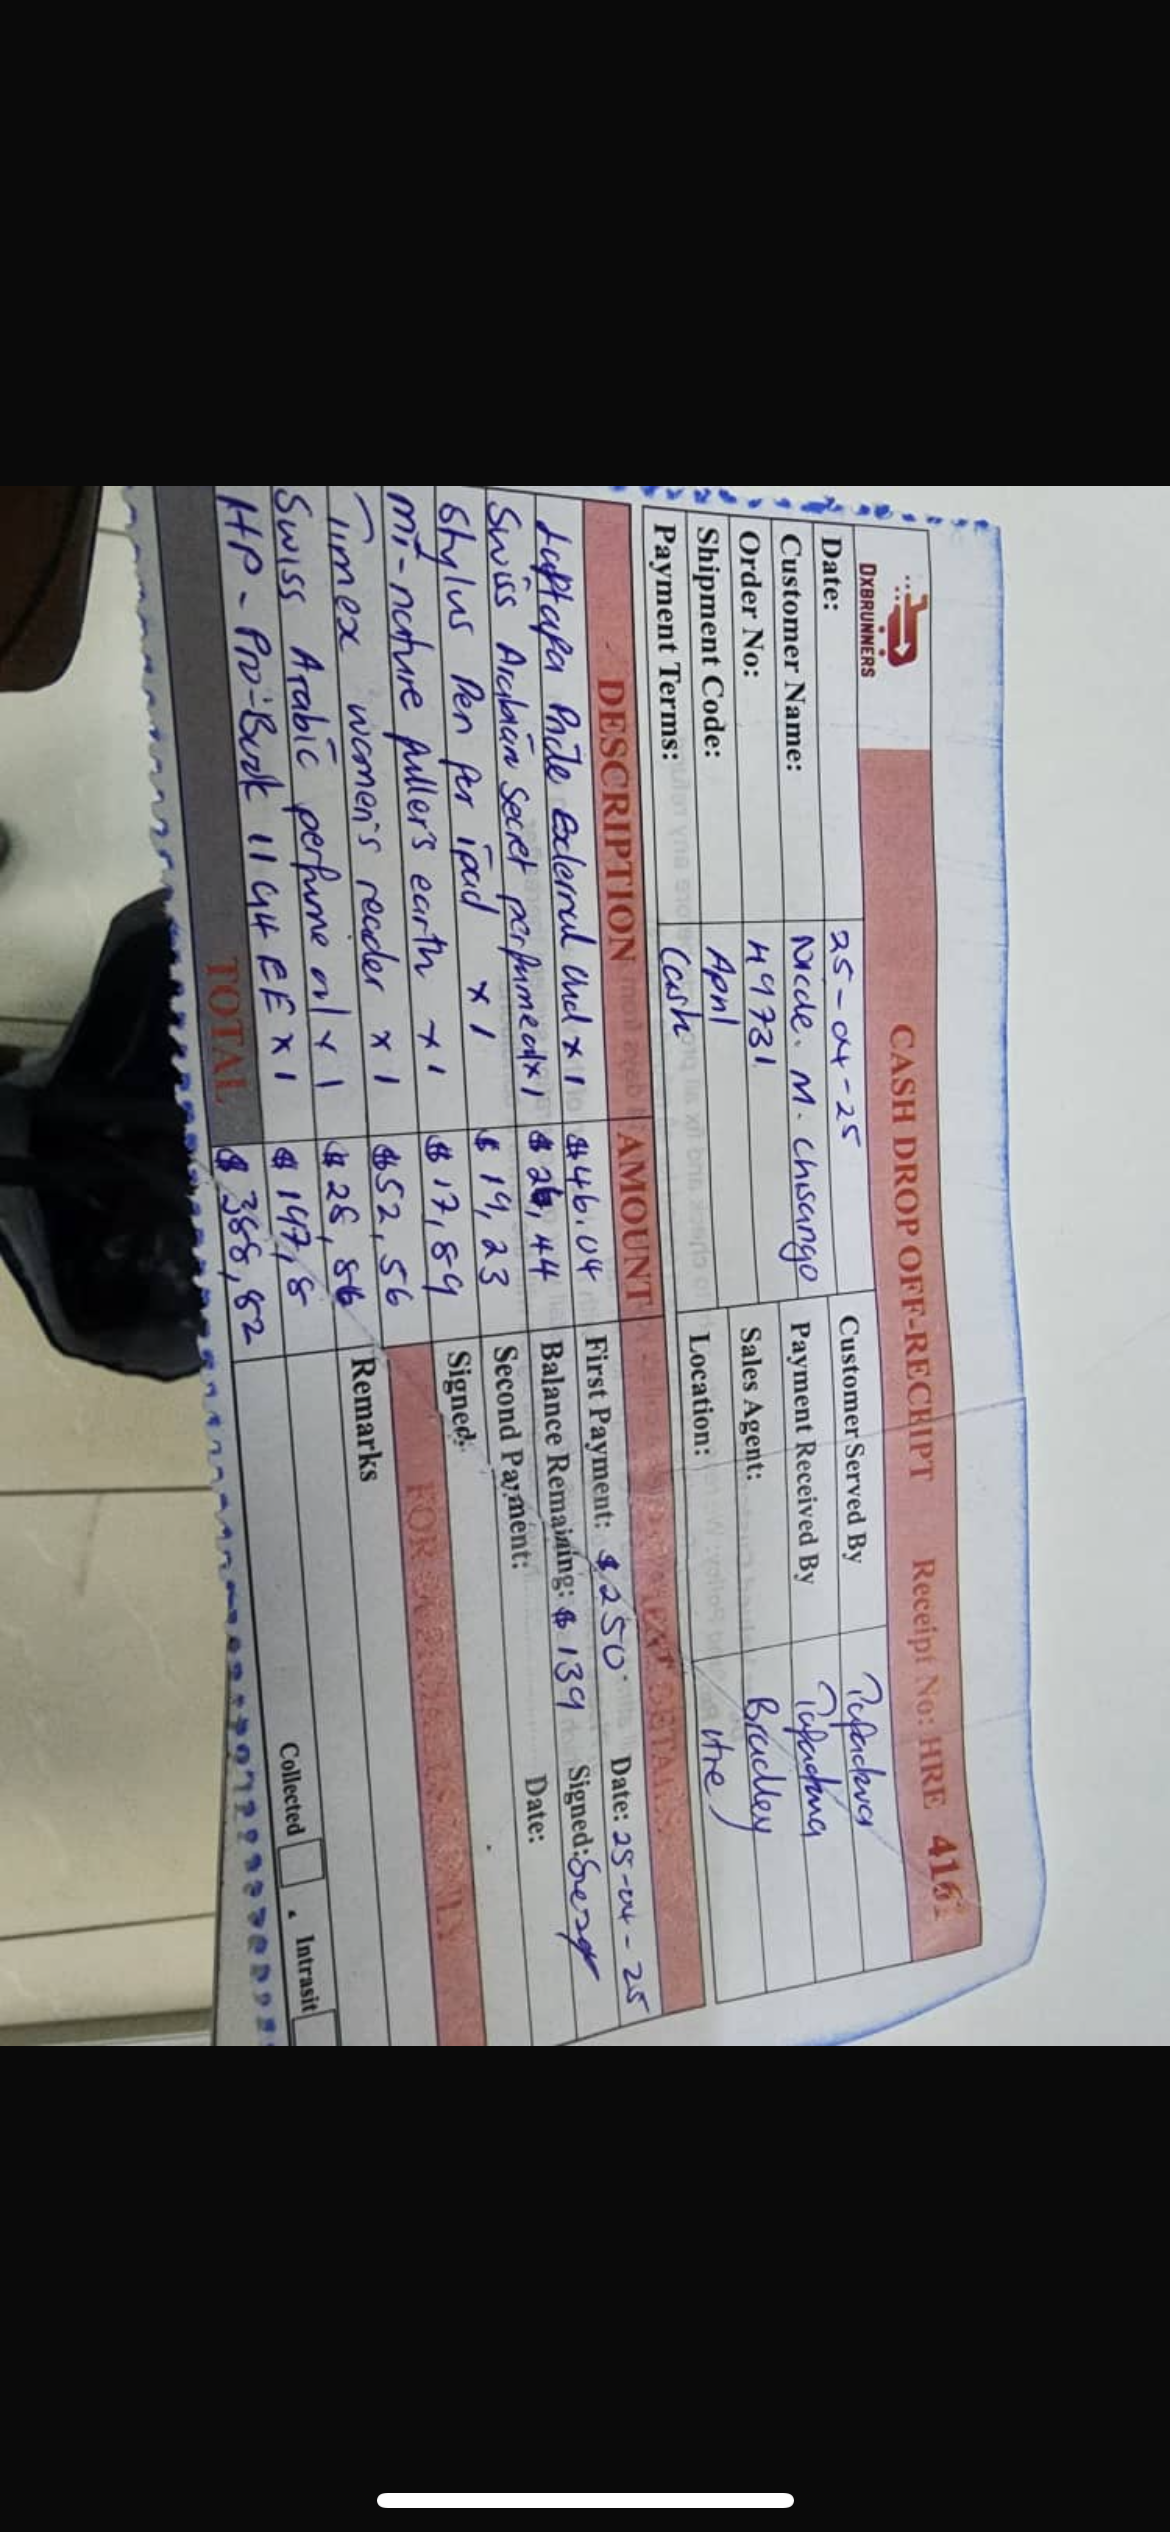 DXBRUNNERS
CASH DROP OFF-RECEIPT Receipt No: HRE 416
Date: 25-04-25 Customer Served By
Customer Name: M. Chisango Payment Received By
Order No: 49731 Sales Agent: Bradley
Shipment Code: April Location: Hre
Payment Terms: Cash
DESCRIPTION AMOUNT DETAILS
External x1 $46.04 First Payment: $250 Date: 25-04-25
Swiss Arabian Secret perfumed x1 $ ,44 Balance Remaining: $139 Signed:
Stylus Pen for ipad x1 $19,23 Second Payment: Date:
Mi-nature fuller's earth x1 $17,89 Signed:
Timex women's reader x1 $52,56 FOR ONLY
Swiss Arabic perfume oil x1 $28,86 Remarks
HP-Pro-Book 11 G4 EE x1 $197,8
TOTAL $388,82 Collected Intrasit